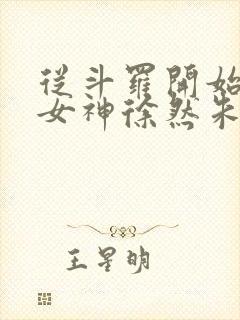 從斗羅開始
女神徐然朱
王星明